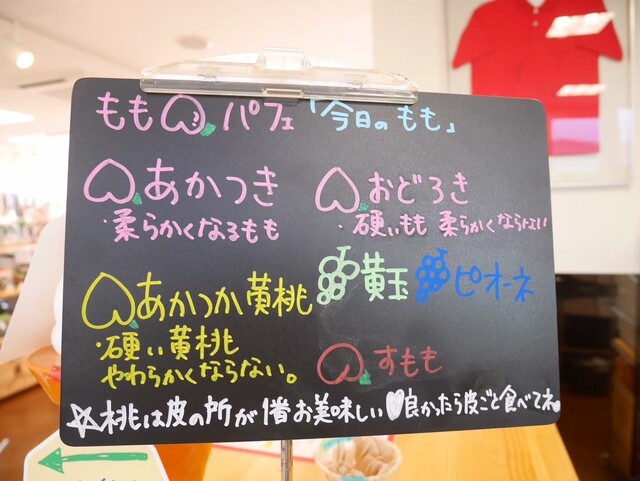 もも パフェ 「今日のもも」
あかつき
・柔らかくなるもも
おどろき
・硬いもも 柔らかくならない
あかつか黄桃
・硬い黄桃
やわらかくならない。
黄玉 ピオーネ
すもも
☆桃は皮の所が1番お美味しい♡良かったら皮ごと食べてネ。